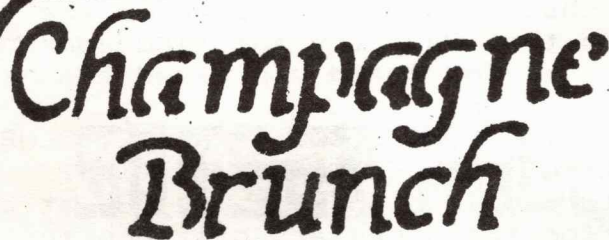 Champagne
Brunch